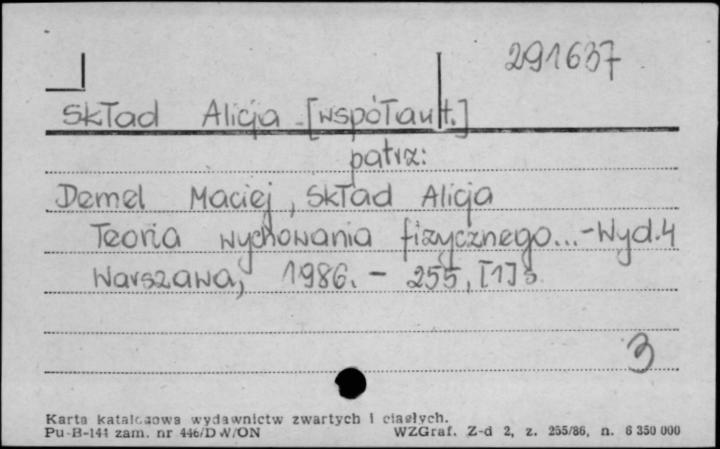 291637
Skład Alicja [współaut.]
patrz:
Demel Maciej, Skład Alicja
Teoria wychowania fizycznego...-Wyd.4
Warszawa, 1986. - 255, [1] s
3
Karta katalogowa wydawnictw zwartych i ciągłych.
Pu-B-144 zam. nr 446/DW/ON WZGraf. Z-d 2, z. 255/86, n. 6 350 000